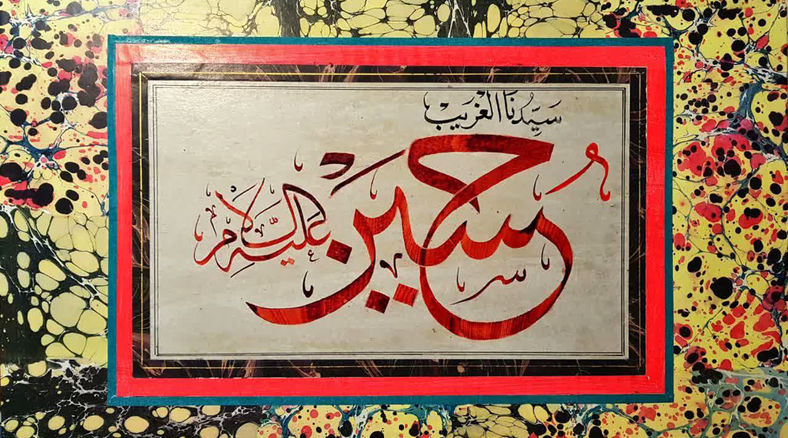 سَيِّدُنَا الْغَرِيْب
حُسَيْن
عَلَيْهِ السَّلَام